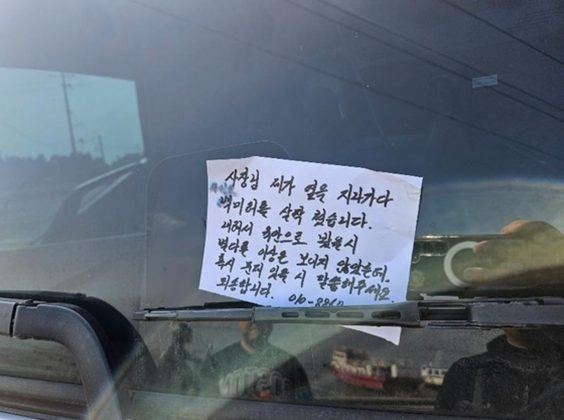 사장님 제가 옆을 지나가다
백미러를 살짝 쳤습니다.
내려서 육안으로 봤을시
별다른 이상은 보이지 않았는데.
혹시 문제 있을 시 말씀해주세요
죄송합니다. 010-88